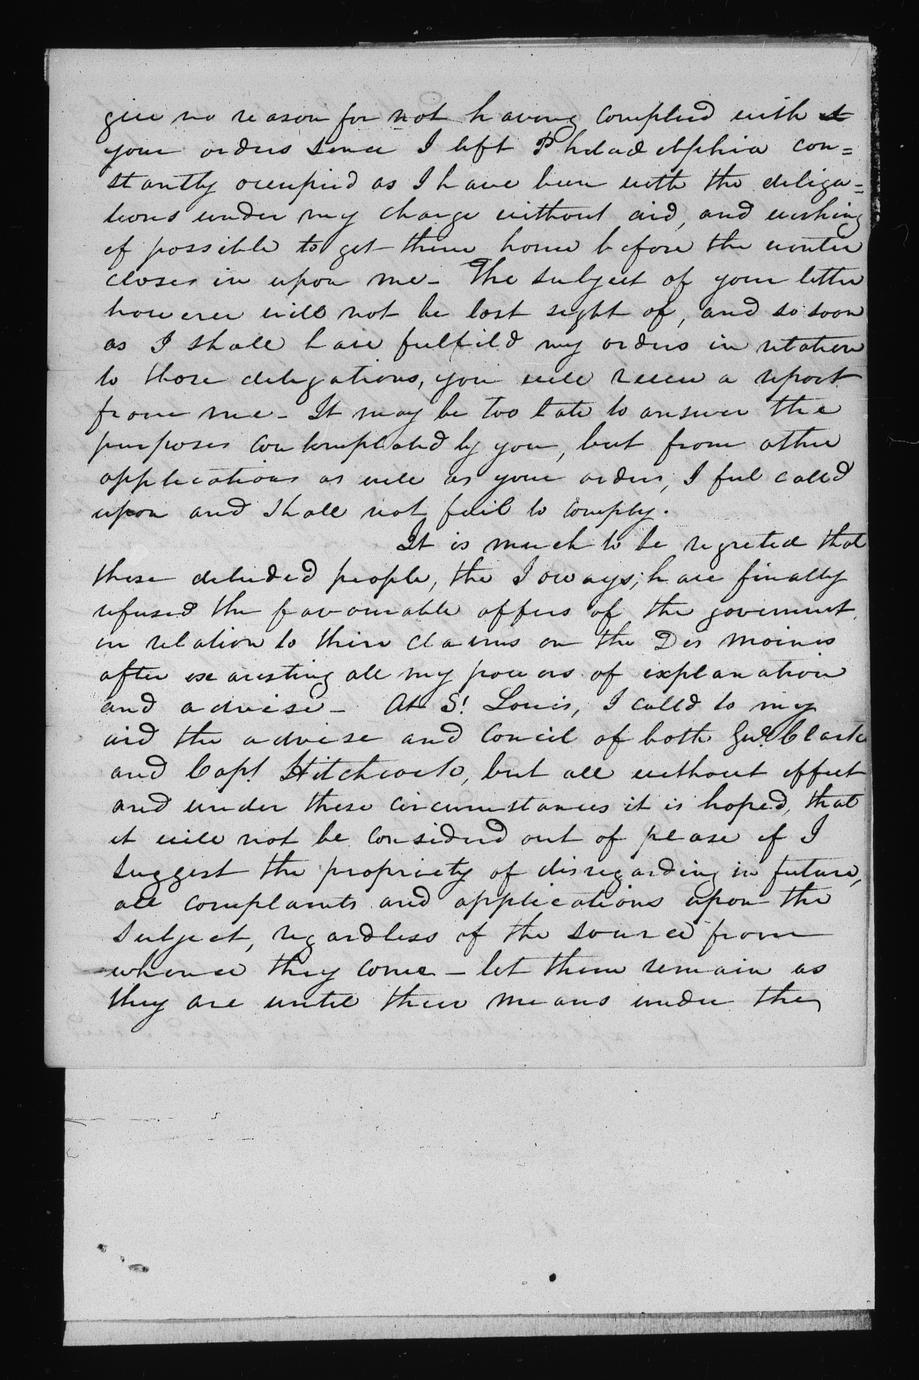 give no reason for not having complied with
your orders since I left Philadelphia con=
stantly occupied as I have been with the deliga=
tions under my charge without aid, and wishing
if possible to get them home before the winter
closes in upon me - The subject of your letter
however will not be lost sight of, and so soon
as I shall have fulfild my orders in relation
to those delegations, you will receive a report
from me - It may be too late to answer the
purposes contemplated by you, but from other
applications as well as your orders, I feel called
upon and shall not fail to comply.
It is much to be regreted that
these deluded people, the Ioways, have finally
refused the favourable offers of the goverment
in relation to their claims on the Des moines
after exarsting all my powers of explanation
and advise - At St Louis, I calld to my
aid the advise and Concil of both Genl Clark
and Capt Hitchcock, but all without effect
and under these circumstances it is hoped, that
it will not be considerd out of please if I
suggest the propriety of disregarding in future,
all complaints and applications upon the
subject, regardless of the source from
whence they come - let them remain as
they are until their means under the